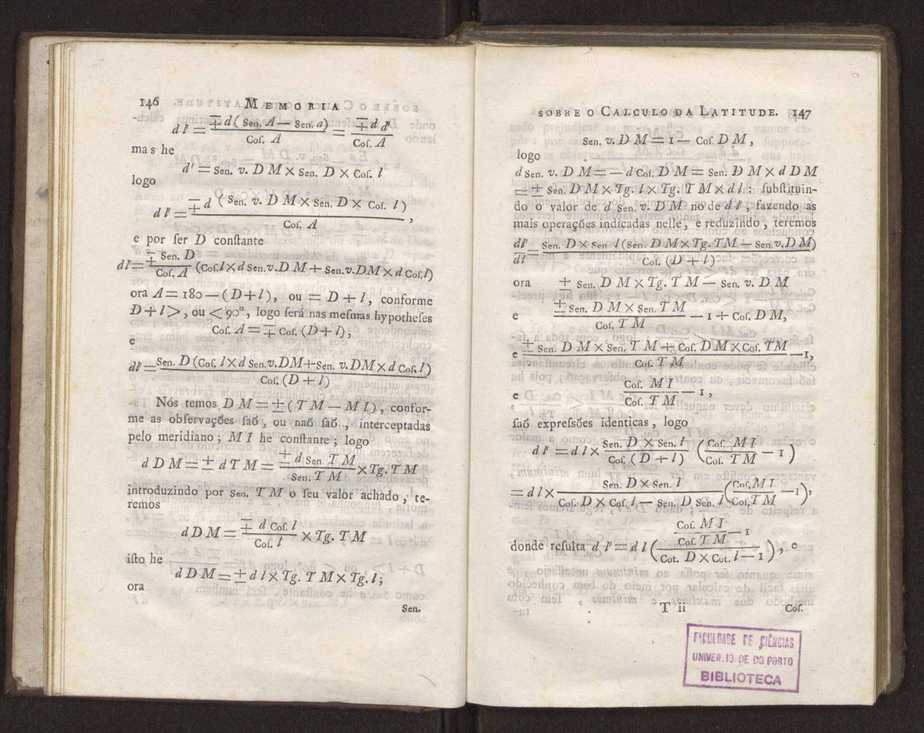 146 MEMORIA
d l' = ∓ d ( Sen. A — Sen. a) / Cos. A = ∓ d d' / Cos. A
mas he
d' = Sen. v. D M × Sen. D × Cos. l
logo
d l' = ∓ d ( Sen. v. D M × Sen. D × Cos. l ) / Cos. A ,
e por ser D constante
dl' = ∓ Sen. D / Cos. A (Cos. l × d Sen. v. D M + Sen. v. DM × d Cos. l)
ora A = 180 — ( D + l ), ou = D + l , conforme
D + l >, ou < 90°, logo será nas mesmas hypotheses
Cos. A = ∓ Cos. (D + l),
e
dl' = Sen. D (Cos. l × d Sen. v. DM + Sen. v. DM × d Cos. l) / Cos. (D + l)
Nós temos D M = ± ( T M — M I ), confor-
me as observações saõ, ou naõ saõ, interceptadas
pelo meridiano; M I he constante; logo
d D M = ± d T M = ± d Sen. T M / Sen. T M × Tg. T M
introduzindo por Sen. T M o seu valor achado, te-
remos
d D M = ∓ d Cos. l / Cos. l × Tg. T M
isto he
d D M = ± d l × Tg. T M × Tg. l ;
ora
Sen.
SOBRE O CALCULO DA LATITUDE. 147
Sen. v. D M = 1 — Cos. D M ,
logo
d Sen. v. D M = — d Cos. D M = Sen. D M × d D M
= ± Sen. D M × Tg. l × Tg. T M × d l : substituin-
do o valor de d Sen. v. D M no de d l', fazendo as
mais operações indicadas nelle, e reduzindo, teremos
dl' / dl = Sen. D × Sen. l (± Sen. D M × Tg. TM — Sen. v. D M) / Cos. (D + l)
ora ± Sen. D M × Tg. T M — Sen. v. D M
e ± Sen. D M × Sen. T M / Cos. T M — 1 + Cos. D M,
e ± Sen. D M × Sen. T M + Cos. D M × Cos. T M / Cos. T M — 1,
e Cos. M I / Cos. T M — 1 ,
saõ expressões identicas, logo
d l' = d l × Sen. D × Sen. l / Cos. (D + l) ( Cos. M I / Cos. T M — 1 )
= d l × Sen. D × Sen. l / Cos. D × Cos. l — Sen. D Sen. l ( Cos. M I / Cos. T M — 1 ),
donde resulta d l' = d l ( Cos. M I / Cos. T M — 1 / Cot. D × Cot. l — 1 ), e
T ii Cos.
FACULDADE DE CIÊNCIAS
UNIVERSIDADE DO PORTO
BIBLIOTECA